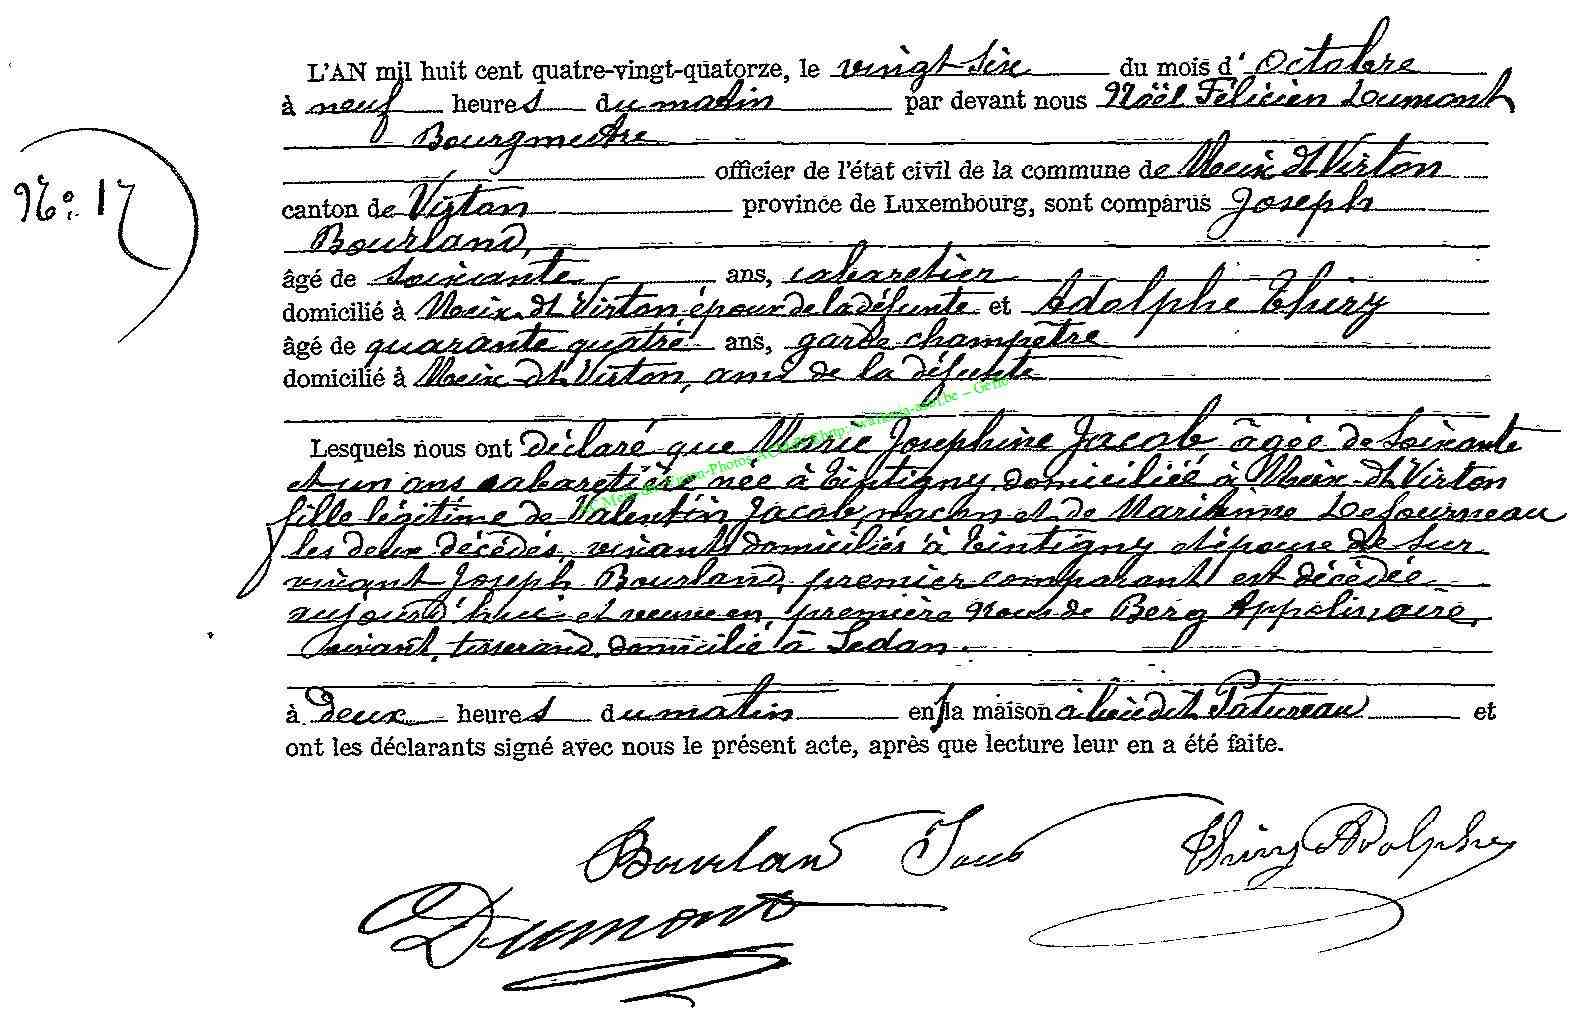 L'AN mil huit cent quatre-vingt-quatorze, le vingt six du mois d' Octobre
à neuf heures du matin par devant nous Noël Félicien Dumont
Bourgmestre
officier de l'état civil de la commune de Meix dt Virton
N° 17
canton de Virton province de Luxembourg, sont comparus Joseph
Bourland,
âgé de soixante ans, cabaretier
domicilié à Meix dt Virton époux de la défunte et Adolphe Thiry
âgé de quarante quatre ans, garde champêtre
domicilié à Meix dt Virton, ami de la défunte
Lesquels nous ont déclaré que Marie Joséphine Jacob âgée de soixante
et un ans cabaretière née à Tintigny domiciliée à Meix dt Virton
fille légitime de Valentin Jacob maçon et de Marianne Lefourneau
les deux décédés, vivant domiciliés à Tintigny et épouse de sur
vivant Joseph Bourland, premier comparant est décédée
aujourd'hui et veuve en première de Berg Appolinaire,
vivant, tisserand, domicilié à Sedan.
à deux heures du matin en la maison à lieu dit Patureau et
ont les déclarants signé avec nous le présent acte, après que lecture leur en a été faite.
Bourland Thiry Adolphe
Dumont